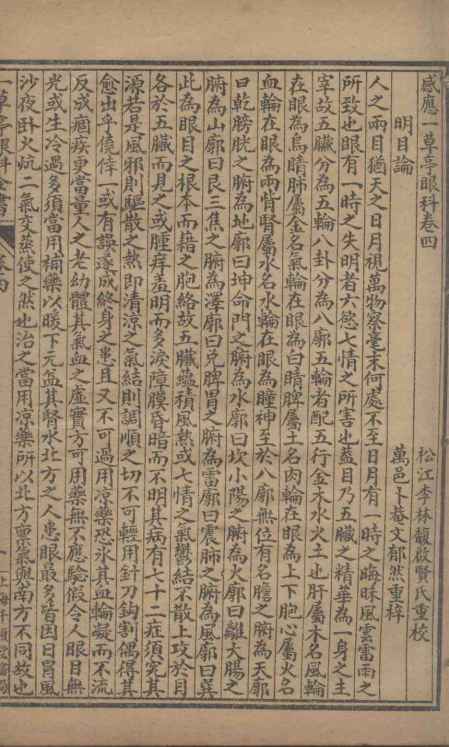 感應一草亭眼科卷四
松江李林馥啟賢氏重校
明目論
萬邑卜菴文郁然重梓
人之兩目猶天之日月視萬物察毫末何處不至日月有一時之晦昧風雲雷雨之
所致也眼有一時之失明者六慾七情之所害也蓋目乃五臟之精華為一身之主
宰故五臟分為五輪八卦分為八廓五輪者配五行金木水火土也肝屬木名風輪
在眼為烏睛肺屬金名氣輪在眼為白睛脾屬土名肉輪在眼為上下胞心屬火名
血輪在眼為兩眥腎屬水名水輪在眼為瞳神至於八廓無位有名膽之腑為天廓
曰乾膀胱之腑為地廓曰坤命門之腑為水廓曰坎小陽之腑為火廓曰離大腸之
腑為山廓曰艮三焦之腑為澤廓曰兌脾胃之腑為雷廓曰震肺之腑為風廓曰巽
此為眼目之根本而藉之胞絡故五臟蘊積風熱或七情之氣鬱結不散上攻於目
各於五臟而見之或腫痒羞明而多淚障膜昏暗而不明其病有七十二症須究其
源若是風邪則驅散之熱即清涼之氣結則調順之切不可輕用針刀鈎割偶得其
愈出乎僥倖 或有誤遂成終身之患且又不可過用涼藥恐氷其血輪凝而不流
反成痼疾更當量人之老幼體其氣血之虛實方可用藥無不應驗假令人眼目無
光或生冷過多須當用補藥以暖下元益其腎水北方之人患眼最多皆因日冒風
沙夜卧火炕二氣交蒸使之然也治之當用涼藥所以北方稟氣與南方不同故也
一草亭眼科全書
卷四
一